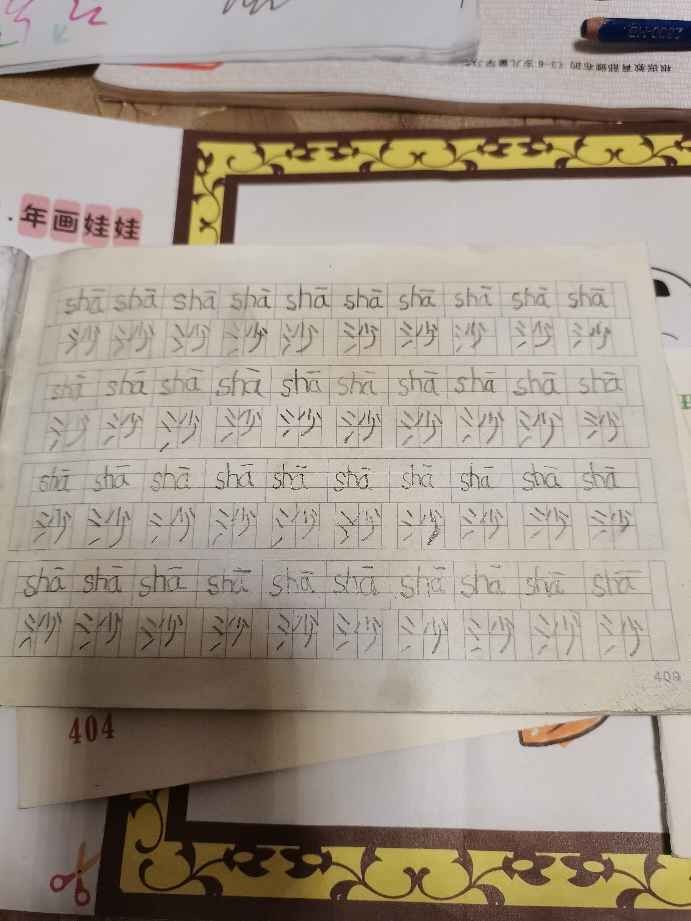 根据教育部颁布的《3-6岁儿童学习
年画娃娃
shā shā shā shā shā shā shā shā shā shā
沙 沙 沙 沙 沙 沙 沙 沙 沙 沙
shā shā shā shā shā shā shā shā shā shā
沙 沙 沙 沙 沙 沙 沙 沙 沙 沙
shā shā shā shā shā shā shā shā shā shā
沙 沙 沙 沙 沙 沙 沙 沙 沙 沙
shā shā shā shā shā shā shā shā shā shā
沙 沙 沙 沙 沙 沙 沙 沙 沙 沙
409
404